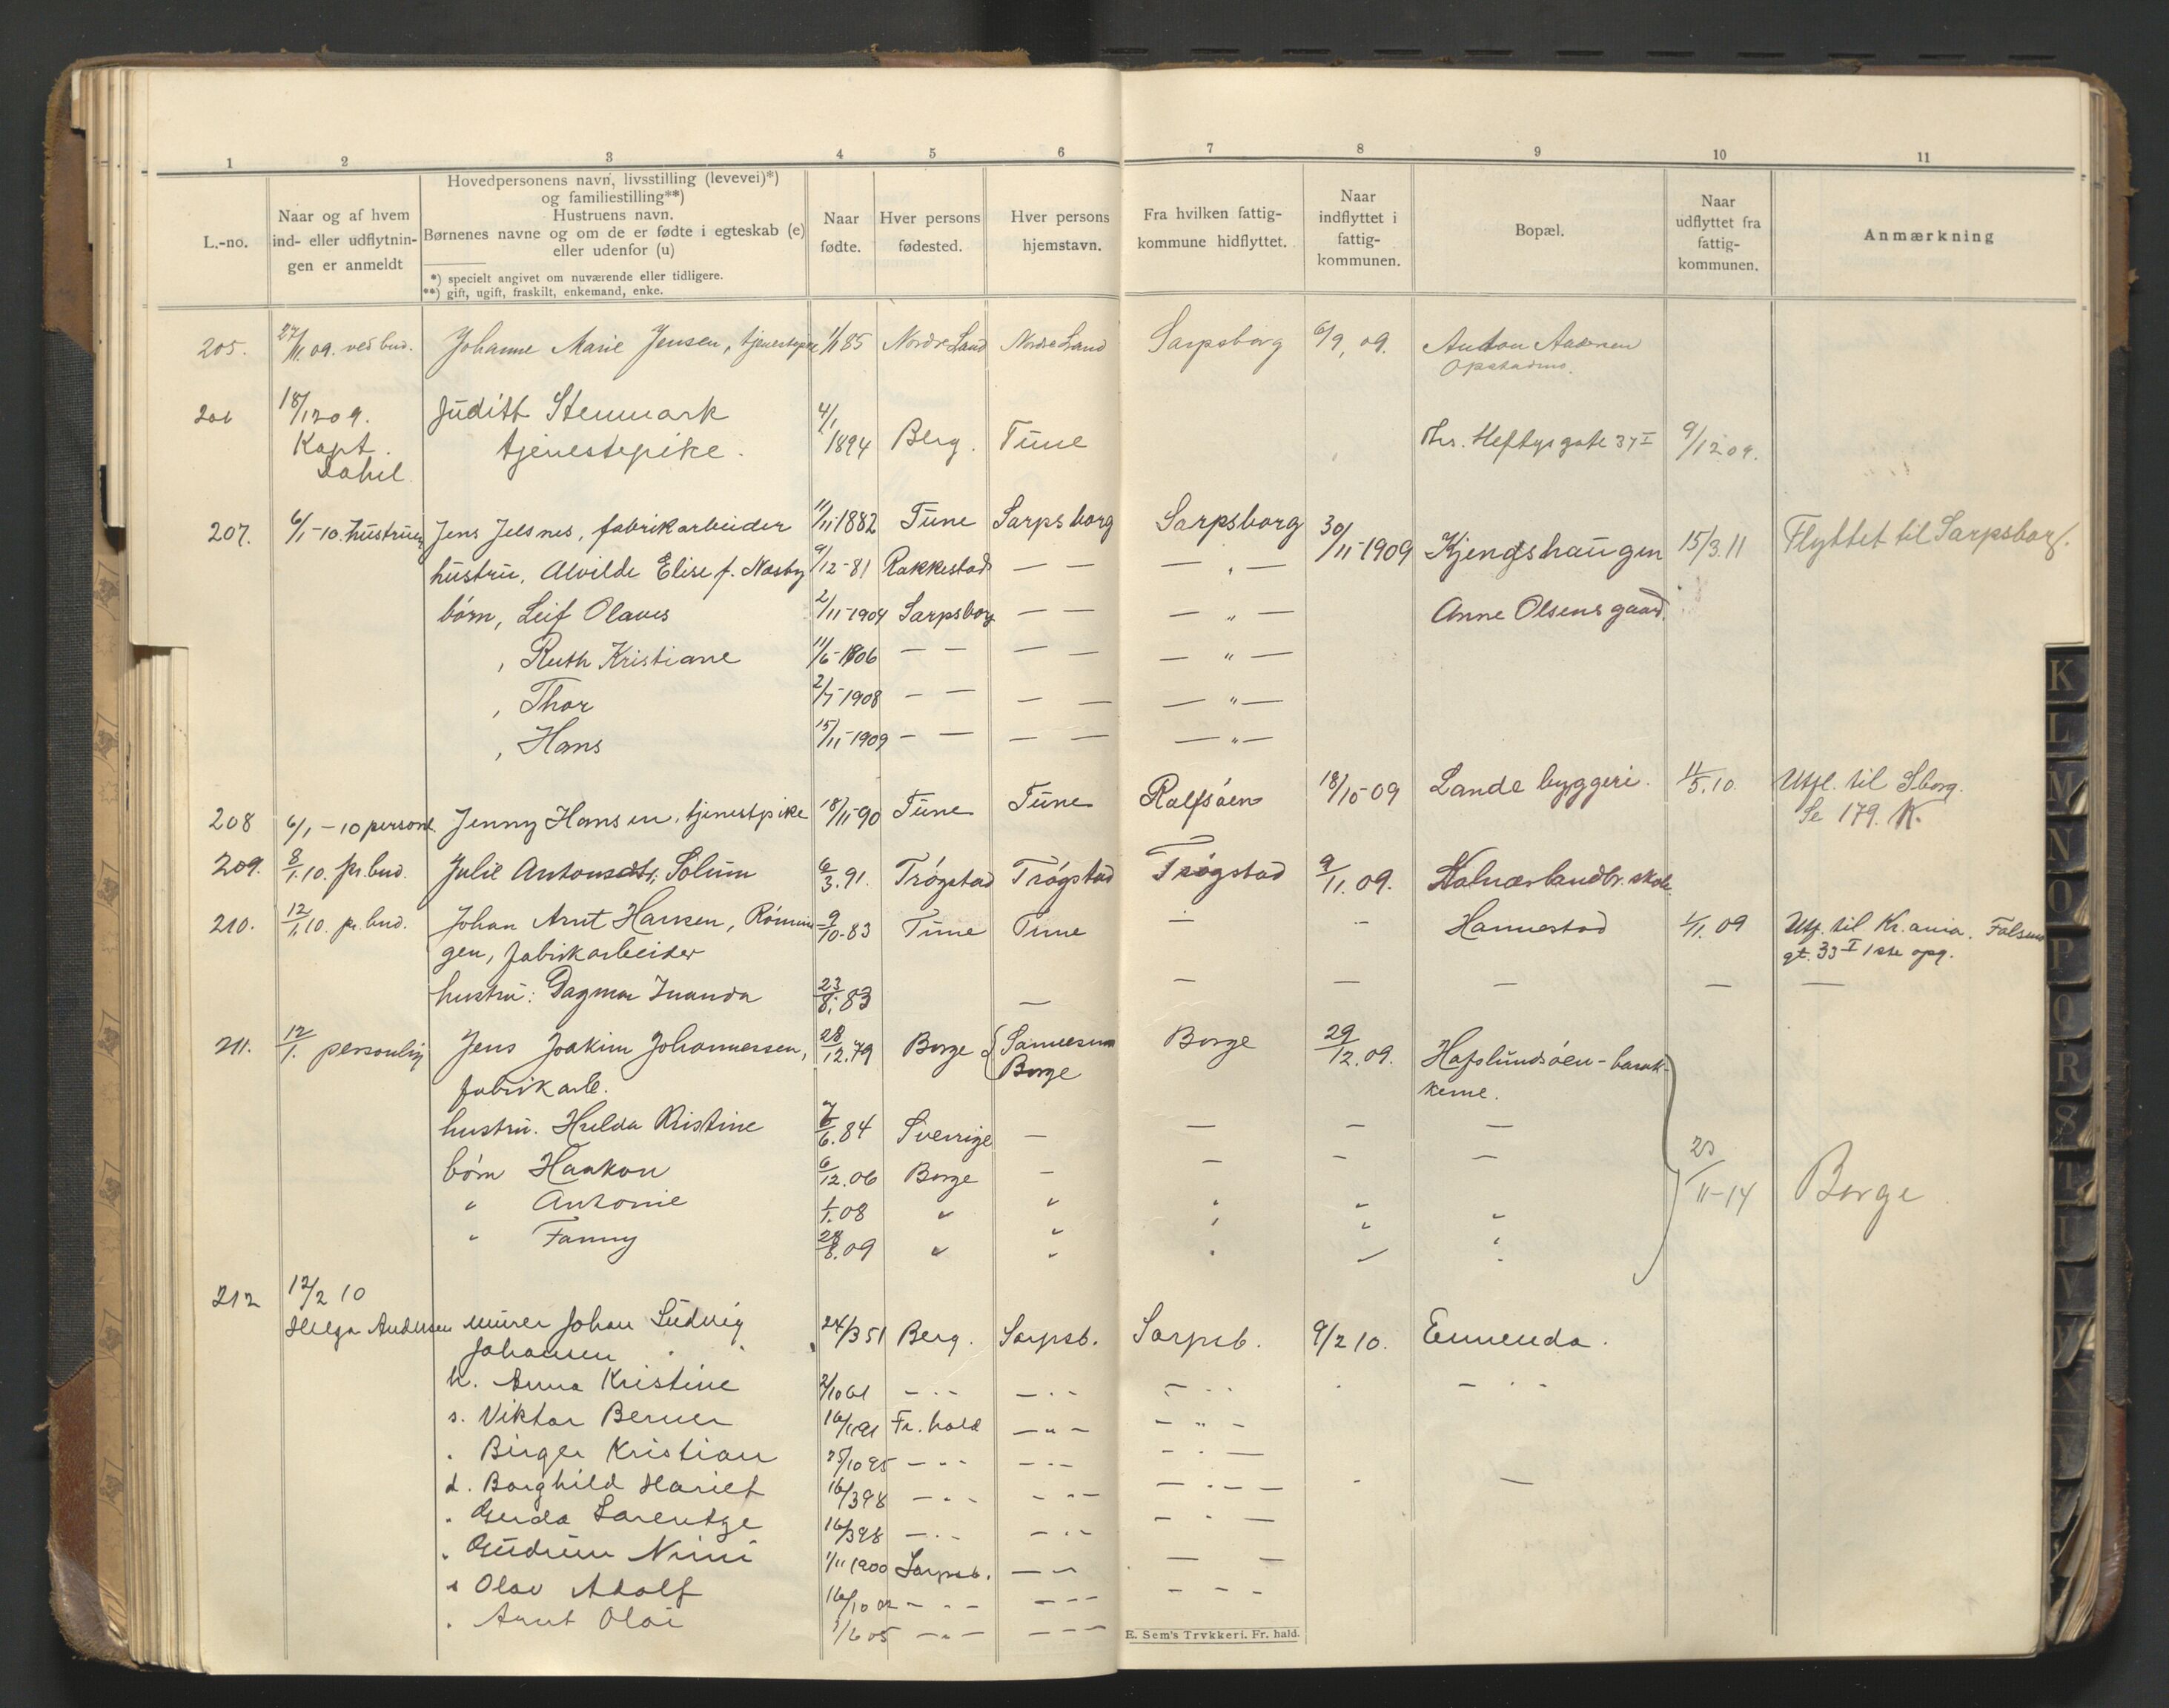 1 2 3 4 5 6 7 8 9 10 11
L.-no.
Naar og af hvem
ind- eller udflytnin-
gen er anmeldt
Hovedpersonens navn, livsstilling (levevei)*)
og familiestilling**)
Hustruens navn.
Børnenes navne og om de er fødte i egteskab (e)
eller udenfor (u)
*) specielt angivet om nuværende eller tidligere.
**) gift, ugift, fraskilt, enkemand, enke.
Naar
fødte.
Hver persons
fødested.
Hver persons
hjemstavn.
Fra hvilken fattig-
kommune hidflyttet.
Naar
indflyttet i
fattig-
kommunen.
Bopæl.
Naar
udflyttet fra
fattig-
kommunen.
Anmærkning
205. 27/11.09. ved bud. Johanne Marie Jensen, 85 Nordre Land Nordre Land Sarpsborg 6/9, 09. Anton
206 18/12 09. Judith Stenmark 4/1
Kapt. tjenestepike. 1894 Berg. Tune Ths. Heftysgate 37 I 9/12 09.
Dahl
207. 6/1-10. hustruen Jens Jelsnes, fabrikarbeider 11/11-1882 Tune Sarpsborg Sarpsborg 30/11-1909 Kjendshaugen 15/3.11 Flyttet til Sarpsborg.
hustru, Alvilde Elise f. Næsby 9/12-81 Rakkestad — — — " —
børn, Leif Olaves 2/11-1904 Sarpsborg — — — " — Anne Olsens gaard.
, Ruth Kristiane 11/6-1906 — — — — — " —
, Thor 1908 — — — — — " —
, Hans 15/11-1909 — — — — — " —
208 6/1-10 personl. Jenny Hansen, tjenestpike 18/11-90 Tune Tune Rolfsøen 18/10-09 Lande byggeri. 11/5.10. Utfl. til Sborg.
Se 179. K.
209. 8/1.10. pr. bud. Julie Antonsdt. Solum 6/3.91. Trøgstad Trøgstad Trøgstad 9/11.09. Kalnæs landbr. skole
210. 12/1.10. pr. bud. Johan Arnt Hansen, 9/10-83 Tune Tune — — Hannestad 1/11.09 Utf. til Kr.ania.
gen, fabrikarbeider gt. 33 I
hustru: Dagmar 23/8.83 — — — — — —
211. 12/1. personlig Jens Joakim Johannessen, 28/12.79 Borge Borge Borge 29/12.09. Hafslundsøen-barak-
fabrikarb. kerne.
hustru. Hulda Kristine 7/6.84 Sverrige — — — —
børn Haakon 6/12.06 Borge — — — — 23/11-14 Borge
" Antonie 1/1.08 " " " " "
" Fanny 28/8.09 " " " " "
212 12/2 10
Helga Andersen murer Johan Ludvig 24/3 51 Berg. Sarpsb. Sarpsb. 9/2 10. Enenda.
Johansen
h. Anna Kristine 2/10 61 — " — — " — — " —
s. Viktor Berner 16/1 91 Fr. hald — " — — " —
" Birger Kristian 25/10 95 — " — — " — — " —
d. Borghild Hariet 16/3 98 — " — — " — — " — —
" Gerda Larentze 16/3 98 — " — — " — — " —
" Gudrun Nini 1/11 1900 Sarpsb. — " — — —
s Olav Adolf 16/10 02 — " — — " — — " —
" Arnt Olai 05 — " — — " —
E. Sem's Trykkeri. Fr. hald.
K
L
M
N
O
P
Q
R
S
T